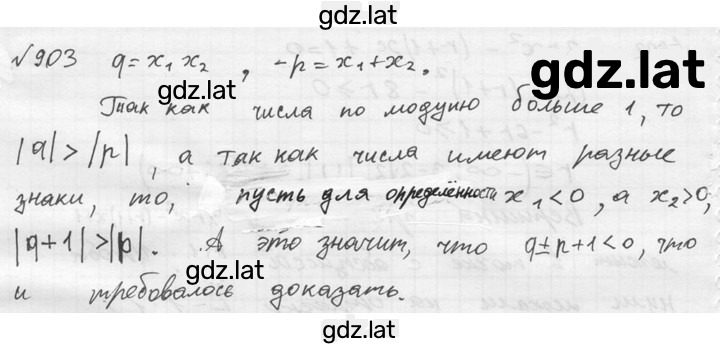 gdz.lat
№903 q=x₁x₂, -p=x₁+x₂.
gdz.lat
Так как числа по модулю больше 1, то
|q|>|p|, а так как числа имеют разные
знаки, то, пусть для определённости x₁<0, а x₂>0,
|q+1|>|p|. А это значит, что q±p+1<0, что
gdz.lat
и требовалось доказать.
gdz.lat